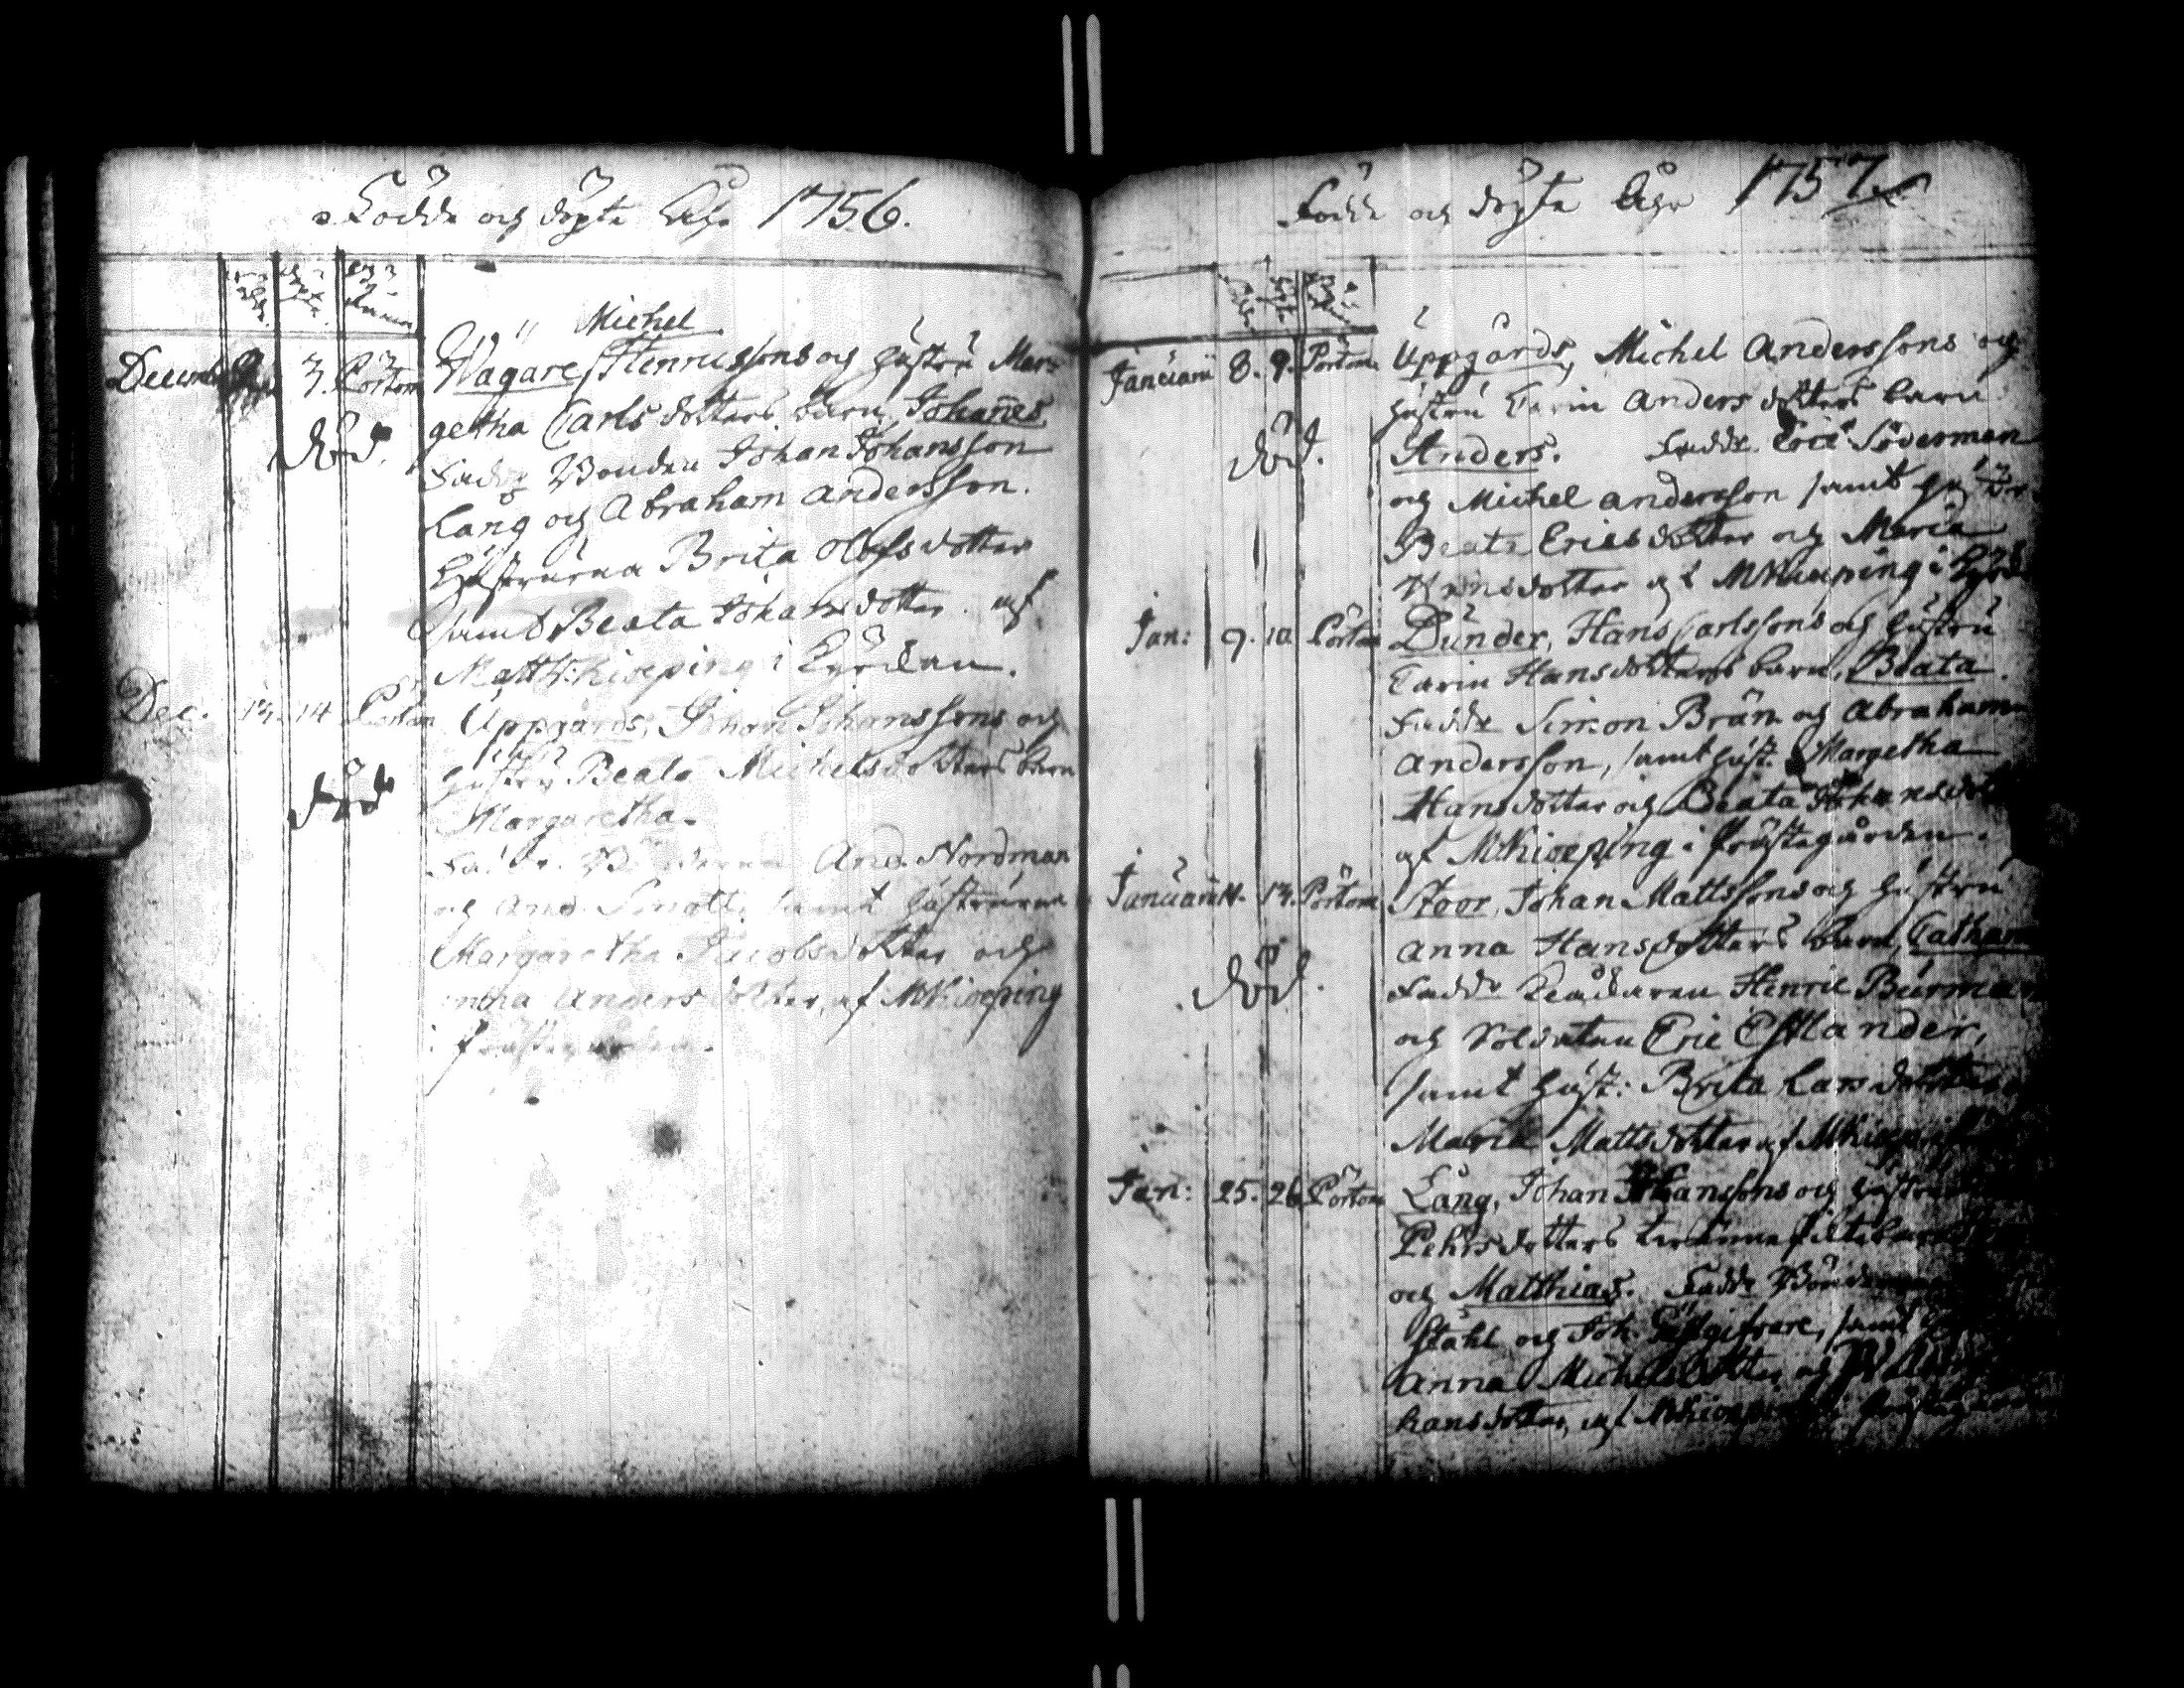 Födde och döpte Åhr 1756.
Michel
Decemb 2. 3. Pörtom Wägare, Henricssons och hustru Mar-
getha Carlsdotters barn, Johannes
död.
Fadd. Bonden Johan Johansson
Lång och Abraham Andersson.
Hustrurna Brita Olofsdotter
samt Beata Johansdotter. af
Matth: Kioeping i Kyrckan.
Dec. 13. 14 Pörtom Uppgårds, Johan Johanssons och
hustru Beata Michelsdotters barn
död
Margaretha.
Fadd. And. Nordman
och And. samt hustrurna
Margaretha Jacobsdotter och
Andersdotter, af MKioeping
i prästegården.
Födde och döpte Åhr 1757.
Januarii 8. 9. Pörtom Uppgårds, Michel Anderssons och
hustru Carin Andersdotters barn
död. Anders. Fadd. Eric Söderman
och Michel Andersson samt
Beata Ericsdotter och Maria
af MKioeping i
Jan: 9. 10 Pörtom Dunder, Hans Carlssons och hustru
Carin Hansdotters barn, Beata.
Fadd. Simon Brän och Abraham
Andersson, samt hust. Margetha
Hansdotter och Beata
af MKioeping i prästegården.
Januarii 11. 13. Pörtom Stoor, Johan Mattssons och hustru
Anna Hansdotters barn, Cathar
död. Fadd. Henric Burman
och Soldaten Eric Estlander,
samt hust: Brita Larsdotter
Maria Mattsdotter af MKioeping
Jan: 25. 26 Pörtom Lång, Johan Johanssons och hustru
Pehrsdotters
och Matthias. Fadd.
Ståhl och Joh. Gästgifvare, samt
Anna Michelsdotter och
hansdotter, af MKioeping